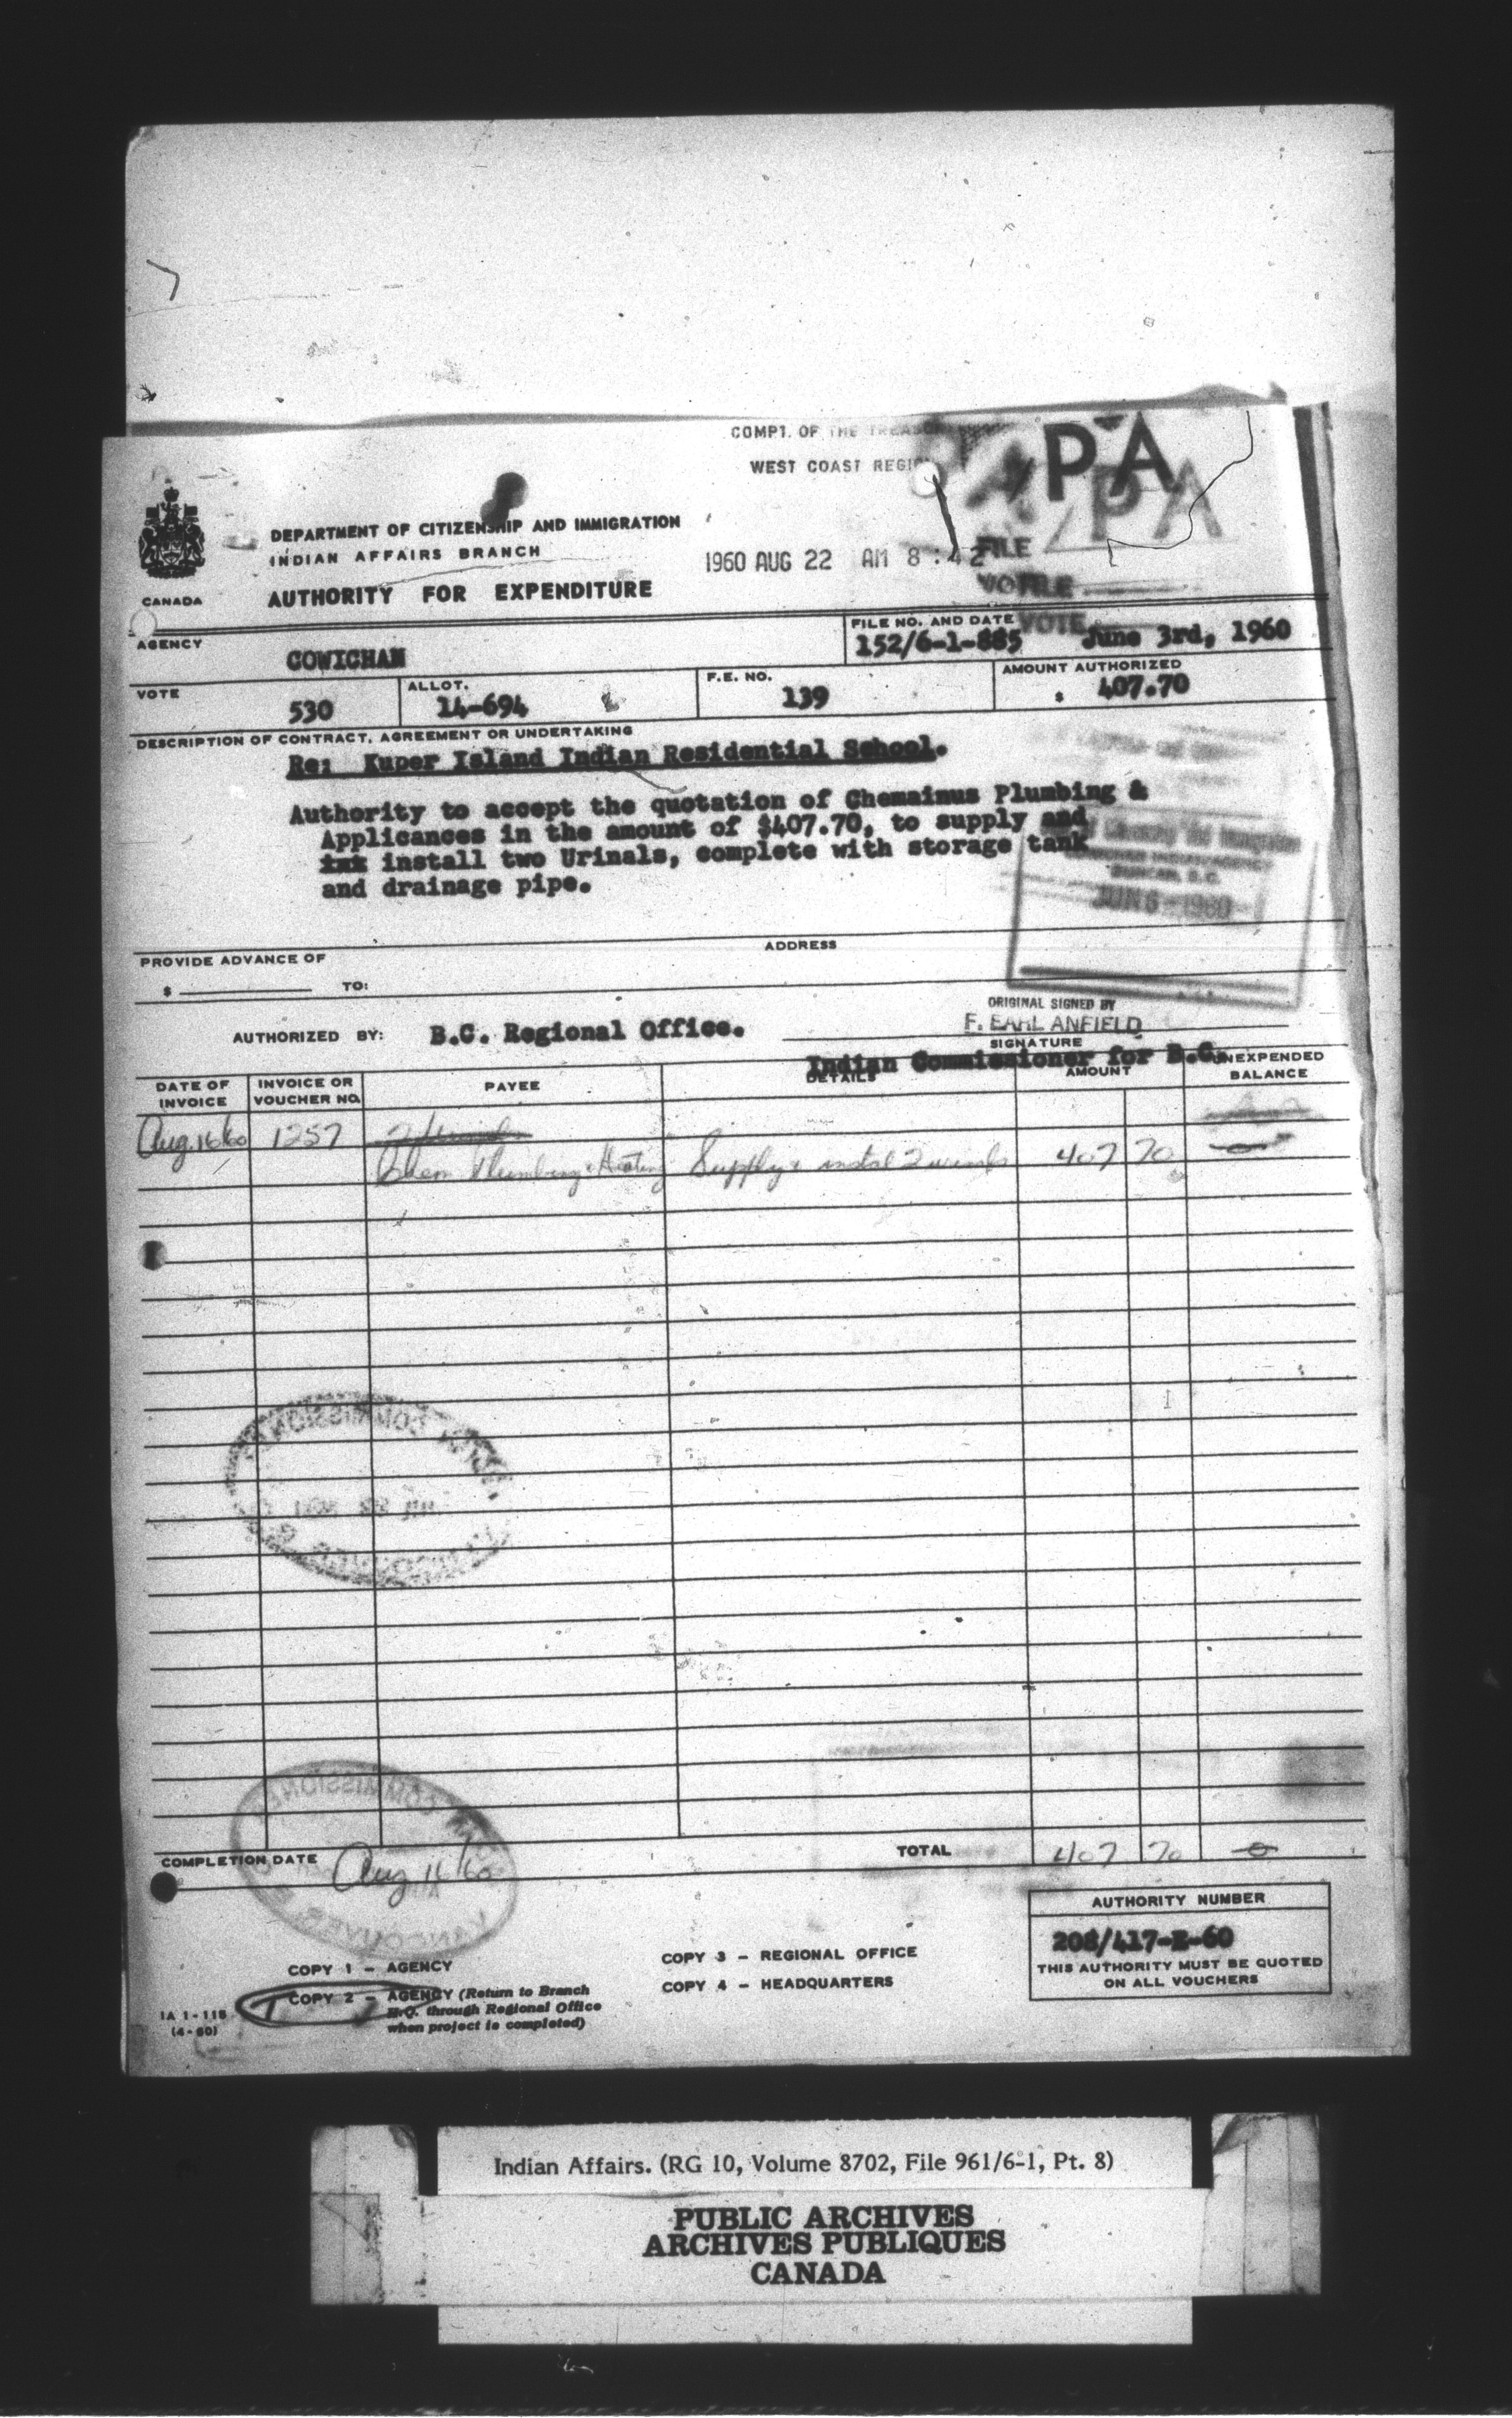 COMPT. OF THE TREASURY
WEST COAST REGION
PA
PA
DEPARTMENT OF CITIZENSHIP AND IMMIGRATION
INDIAN AFFAIRS BRANCH
1960 AUG 22 AM 8:42
FILE
VOTE
FILE
VOTE
CANADA
AUTHORITY FOR EXPENDITURE
AGENCY
COWICHAN
FILE NO. AND DATE
152/6-1-885 June 3rd, 1960
VOTE
530
ALLOT.
14-694
F.E. NO.
139
AMOUNT AUTHORIZED
$ 407.70
DESCRIPTION OF CONTRACT, AGREEMENT OR UNDERTAKING
Re: Kuper Island Indian Residential School.
Authority to accept the quotation of Chemainus Plumbing &
Applicances in the amount of $407.70, to supply and
install two Urinals, complete with storage tank
and drainage pipe.
DUNCAN, B.C.
JUN 6 - 1960
PROVIDE ADVANCE OF
ADDRESS
$ TO:
ORIGINAL SIGNED BY
F. EARL ANFIELD
AUTHORIZED BY: B.C. Regional Office.
SIGNATURE
Indian Commissioner for B.C.
DATE OF INVOICE
INVOICE OR VOUCHER NO.
PAYEE
DETAILS
AMOUNT
UNEXPENDED BALANCE
Aug. 16/60 1257
Chem Plumbing & Heating Supply & instal 2 urinals 407 70 -0-
COMPLETION DATE Aug 16/60
TOTAL 407 70 -0-
AUTHORITY NUMBER
208/417-E-60
THIS AUTHORITY MUST BE QUOTED
ON ALL VOUCHERS
COPY 1 - AGENCY
COPY 2 - AGENCY (Return to Branch
H.Q. through Regional Office
when project is completed)
COPY 3 - REGIONAL OFFICE
COPY 4 - HEADQUARTERS
IA 1-115
(4-60)
Indian Affairs. (RG 10, Volume 8702, File 961/6-1, Pt. 8)
PUBLIC ARCHIVES
ARCHIVES PUBLIQUES
CANADA